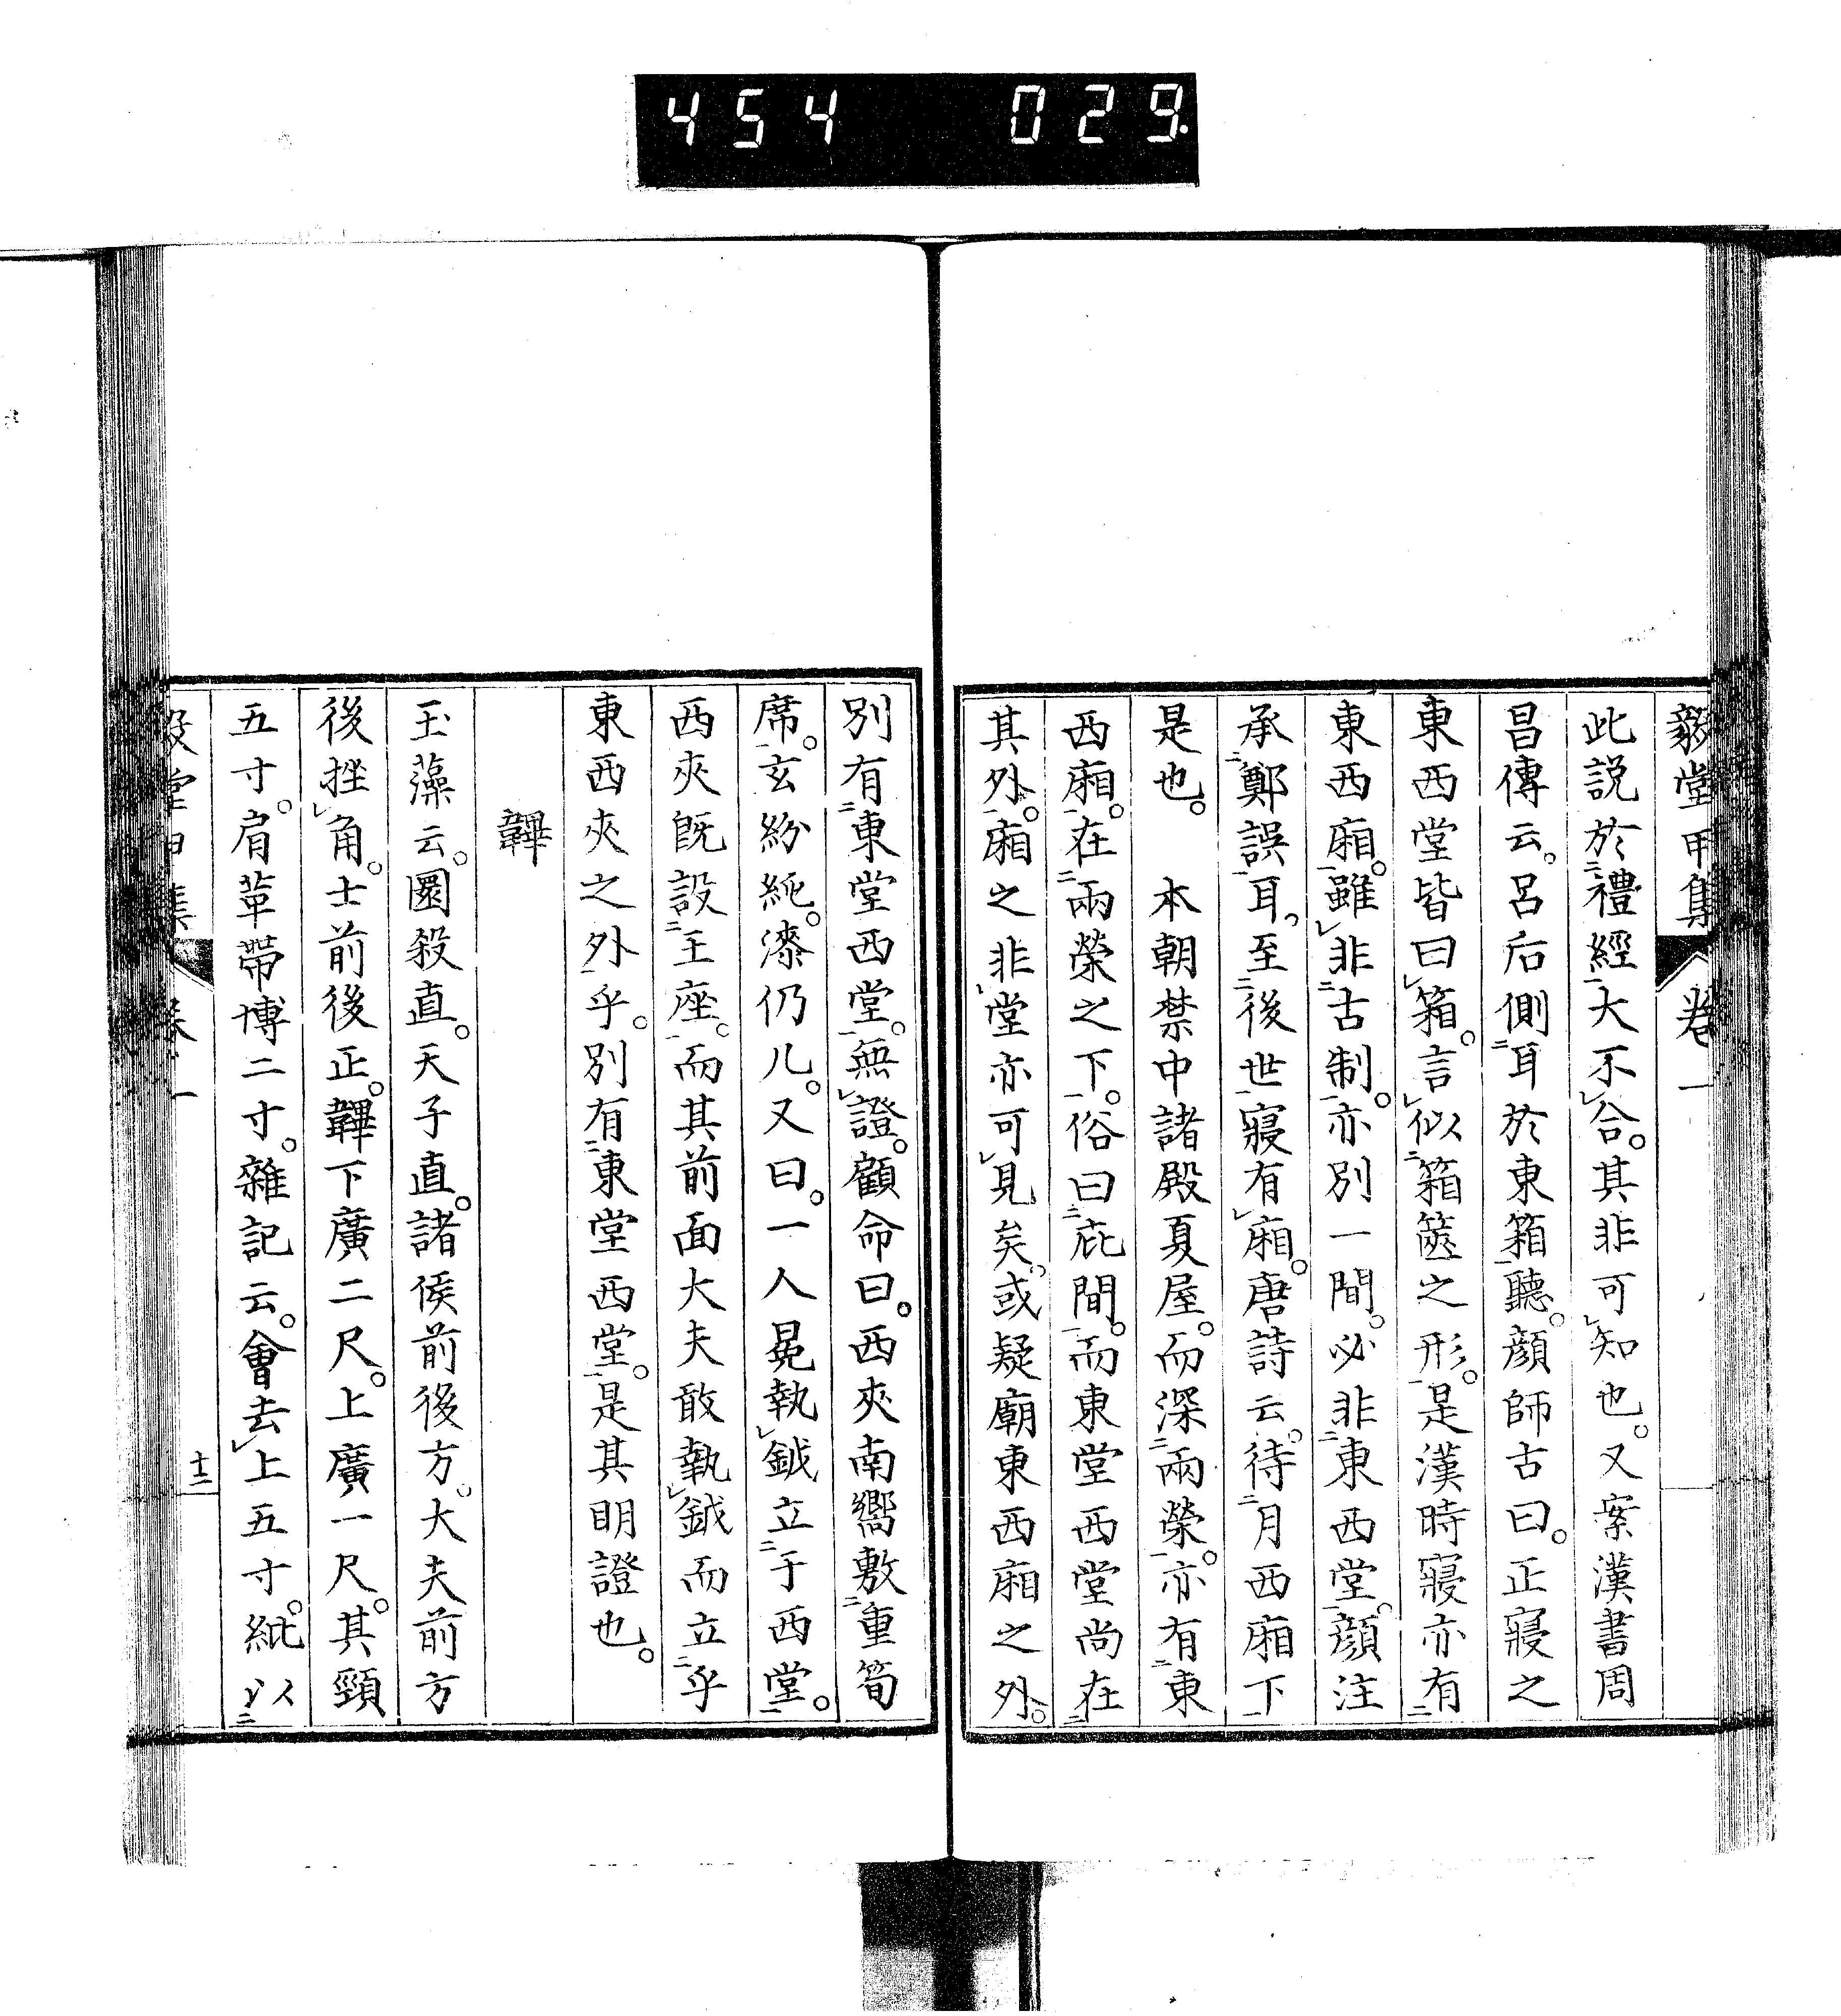 454 029.
毅堂甲集 卷一
此説於二禮經一大不レ合。其非可レ知也。又案漢書周
昌傳云。呂后側二耳於東箱一聽。顔師古曰。正寢之
東西堂皆曰レ箱。言レ似二箱篋之形一。是漢時寢亦有二
東西廂一。雖レ非二古制一。亦別一間。必非二東西堂一。顔注
承二鄭誤一耳。至二後世一寢有レ廂。唐詩云。待二月西廂下一
是也。 本朝禁中諸殿夏屋。而深二兩榮一。亦有二東
西廂一。在二兩榮之下一。俗曰二庇間一。而東堂西堂尚在二
其外一。廂之非レ堂亦可レ見矣。或疑廟東西廂之外。
別有二東堂西堂一。無レ證。顧命曰。西夾南嚮敷二重筍
席一。玄紛純。漆仍几。又曰。一人冕執レ鉞立二于西堂一。
西夾既設二王座一。而其前面大夫敢執レ鉞而立二乎
東西夾之外一乎。別有二東堂西堂一。是其明證也。
韠
玉藻云。圜殺直。天子直。諸侯前後方。大夫前方
後挫レ角。士前後正。韠下廣二尺。上廣一尺。其頸
五寸。肩革帶博二寸。雜記云。會去レ上五寸。紕以二
毅堂甲集 卷一 十二